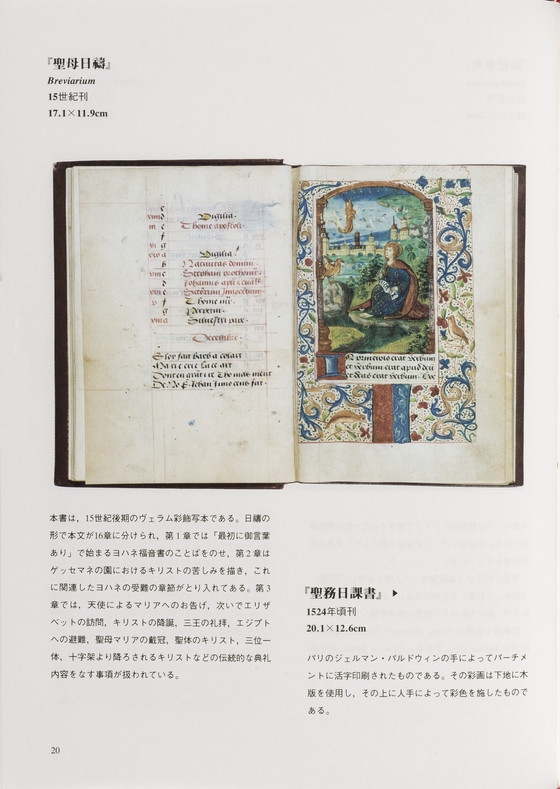 『聖母日禱』
Breviarium
15世紀刊
17.1×11.9cm
Vigilia
Thome apostoli
Vigilia
Nativitas domini
Thome
Silvestri pape
Decembre
In principio erat verbum
et verbum erat apud deum
et deus erat verbum. Hoc
本書は，15世紀後期のヴェラム彩飾写本である。日禱の
形で本文が16章に分けられ，第1章では「最初に御言葉
あり」で始まるヨハネ福音書のことばをのせ，第2章は
ゲッセマネの園におけるキリストの苦しみを描き，これ
に関連したヨハネの受難の章節がとり入れてある。第3
章では，天使によるマリアへのお告げ，次いでエリザ
ベットの訪問，キリストの降誕，三王の礼拝，エジプト
への避難，聖母マリアの戴冠，聖体のキリスト，三位一
体，十字架より降ろされるキリストなどの伝統的な典礼
内容をなす事項が扱われている。
『聖務日課書』▶
1524年頃刊
20.1×12.6cm
パリのジェルマン・バルドウィンの手によってパーチメ
ントに活字印刷されたものである。その彩画は下地に木
版を使用し，その上に人手によって彩色を施したもので
ある。
20